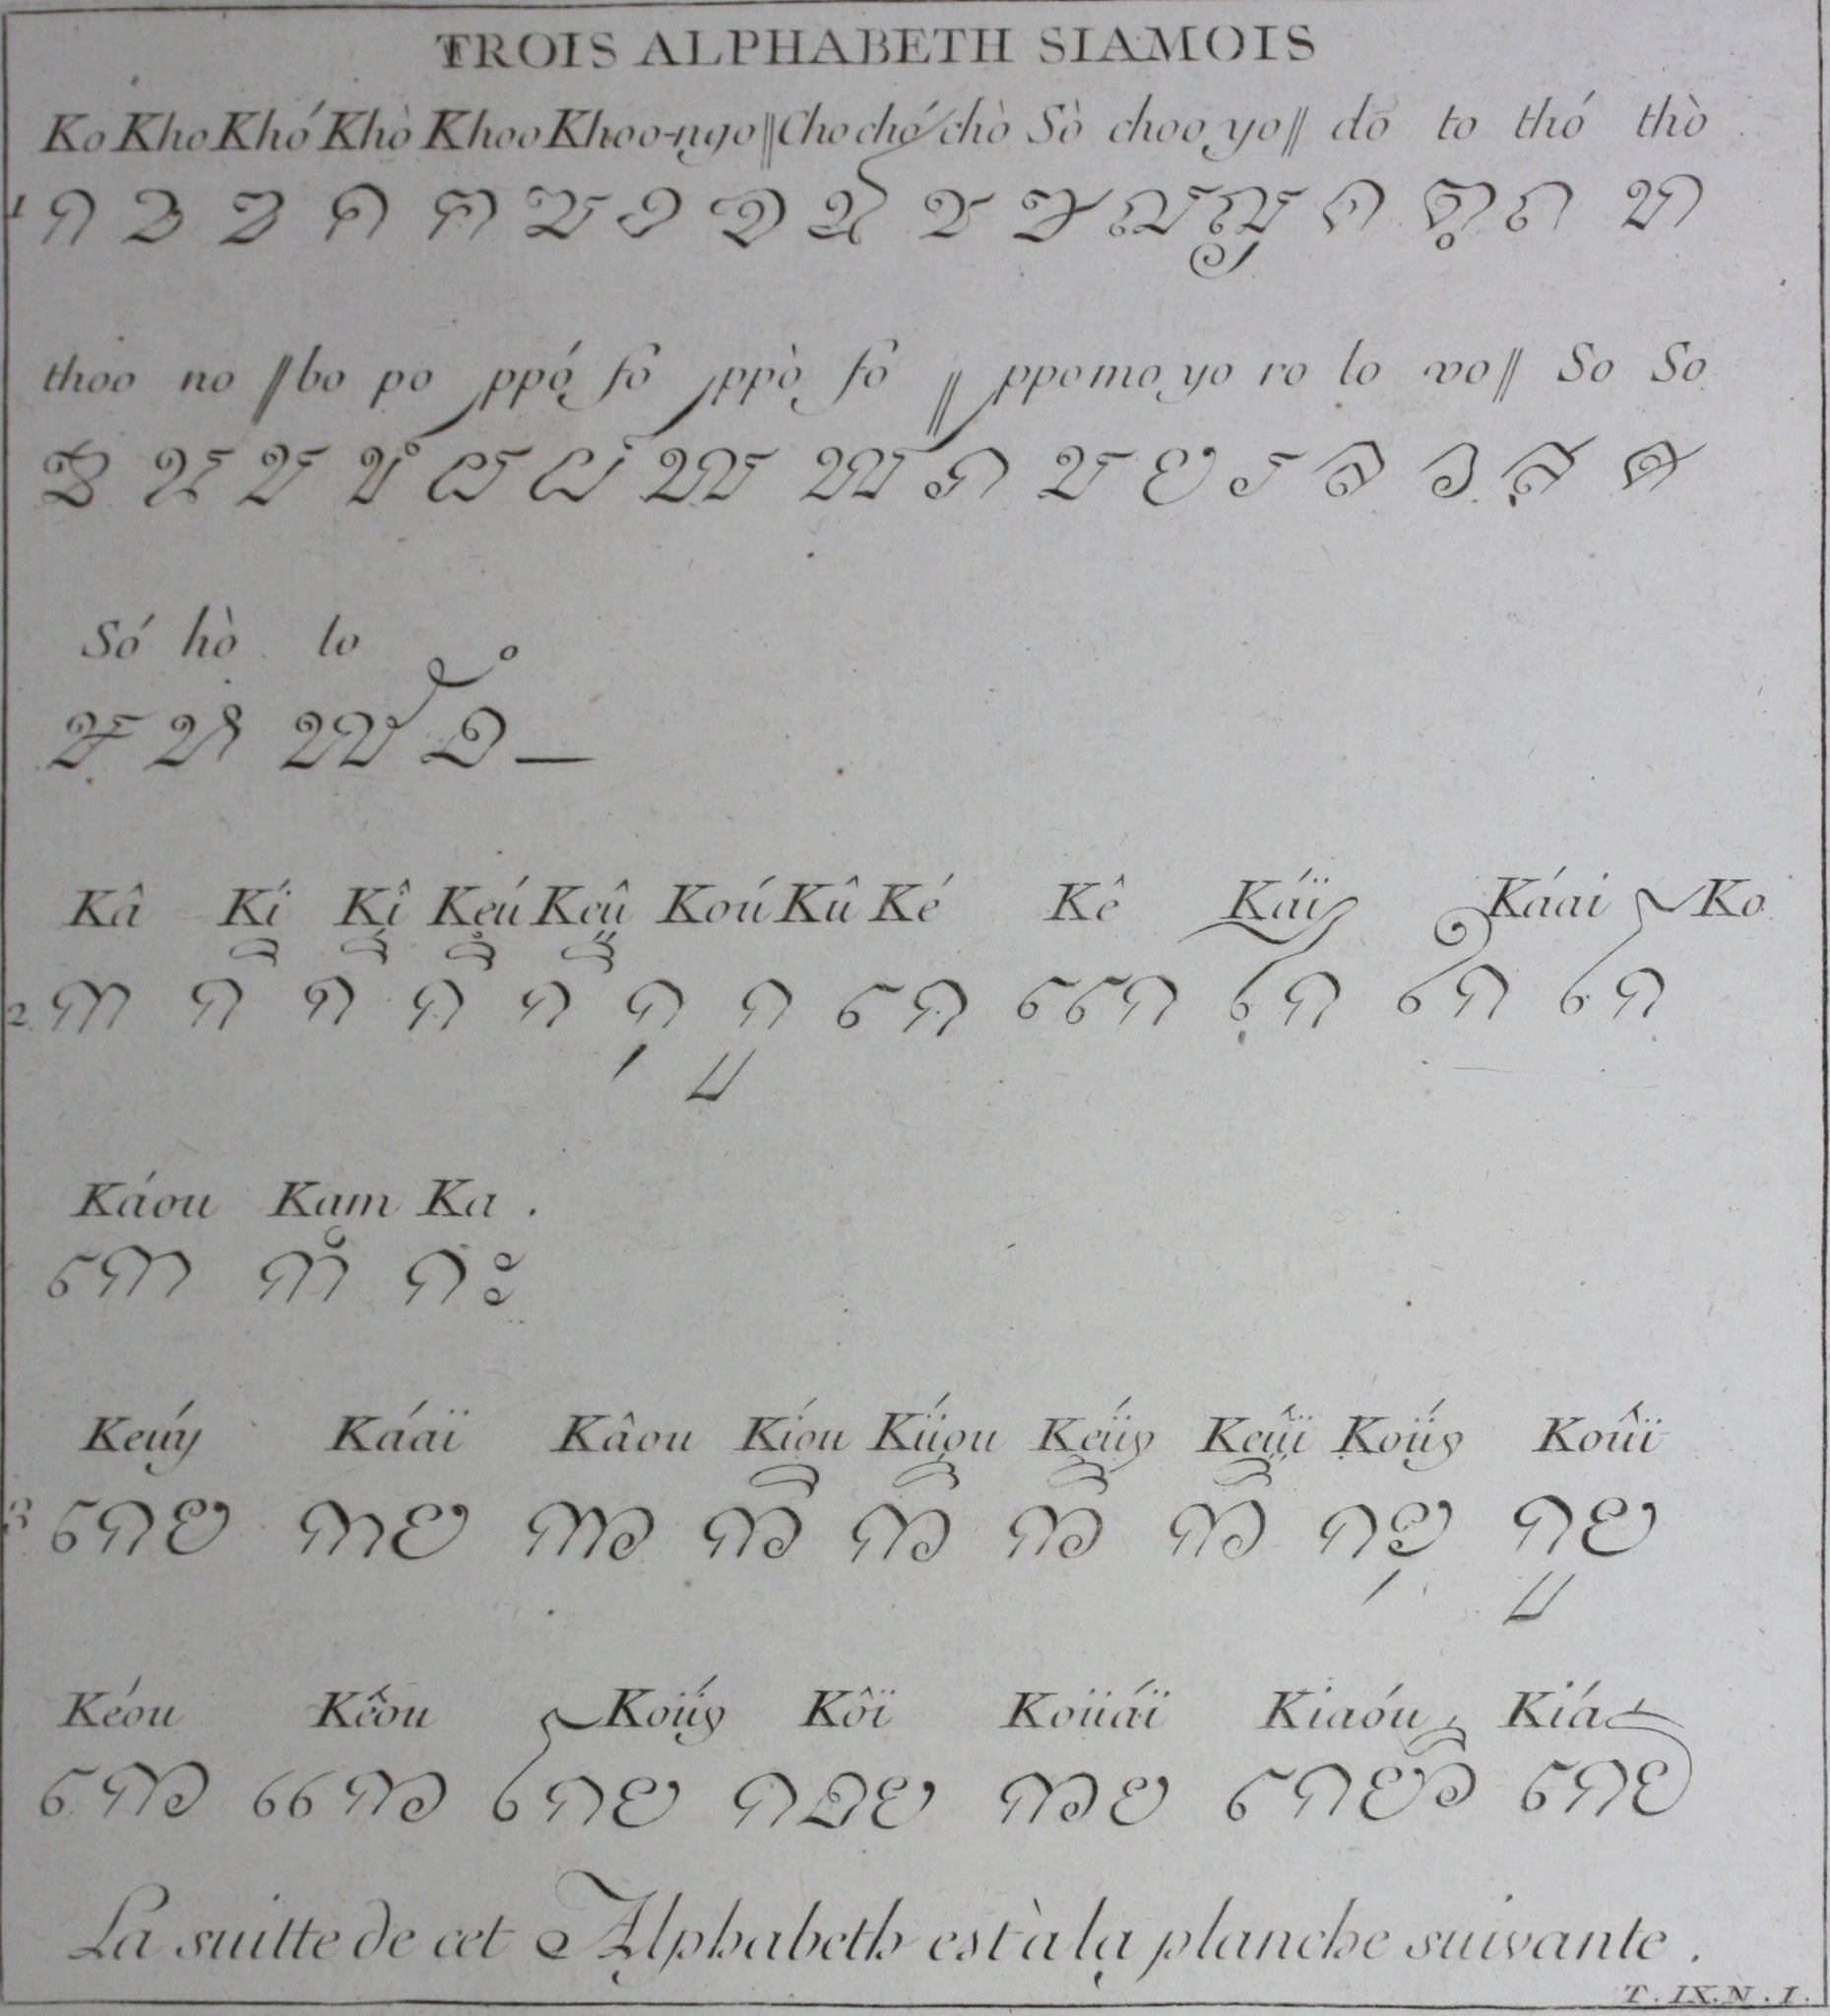 TROIS ALPHABETH SIAMOIS
Ko Kho Khó Khò Khoo Khoo-ngo ‖ Cho chó chò Sò choo yo ‖ dō to thó thò
1 ก ข ฃ ค ฅ ฆ ง จ ฉ ช ซ ฌ ญ ด ต ถ ท
thoo no ‖ bo po ppó fô ppò fô ‖ ppo mo yo ro lo vo ‖ So So
ธ น บ ป ผ ฝ พ ฟ ภ ม ย ร ล ว ส ศ
Só hò lo
ษ ห ฬ อ —
Kâ Kí Kî Keú Keû Koú Kû Ké Kê Káï Káai Ko
2 กา กิ กี กึ กื กุ กู เก แก ไก ใก โก
Káou Kam Ka .
เกา กำ กะ
Keúy Káaï Kâou Kíou Kíïou Keüý Keûï Koüý Koûï
3 เกย กาย กาว กิว กีว กึว กืว กุย กูย
Kéou Kêou Koüý Kôï Koüáï Kiaóu Kiá
เกว แกว โกย กอย กวย เกียว เกีย
La suitte de cet Alphabeth est à la planche suivante .
T. IX. N. I.